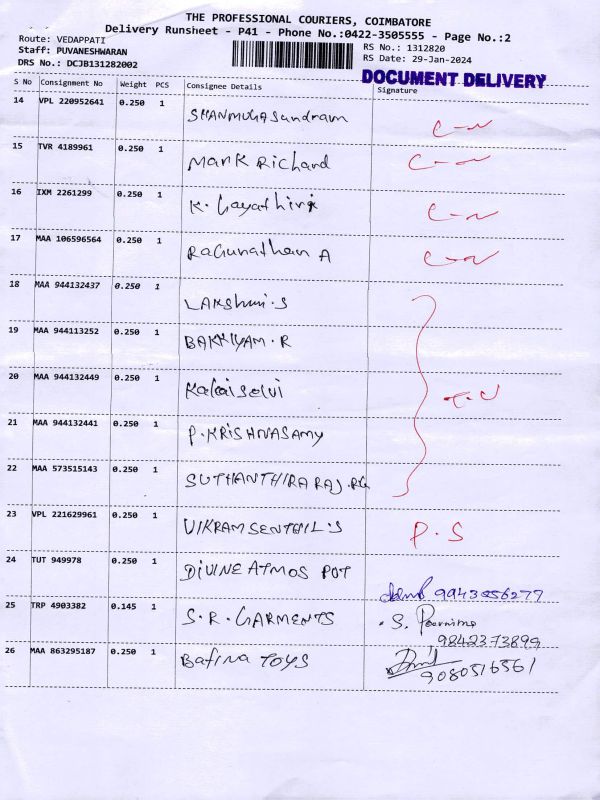 THE PROFESSIONAL COURIERS, COIMBATORE
Delivery Runsheet - P41 - Phone No.:0422-3505555 - Page No.:2
Route: VEDAPPATI RS No.: 1312820
Staff: PUVANESHWARAN RS Date: 29-Jan-2024
DRS No.: DCJB131282002 DOCUMENT DELIVERY
S No Consignment No Weight PCS Consignee Details Signature
14 VPL 220952641 0.250 1 SHANMUGA Sundram
15 TVR 4189961 0.250 1 Mark Richard
16 IXM 2261299 0.250 1 K. Gayathiri
17 MAA 106596564 0.250 1 Ragunathan A
18 MAA 944132437 0.250 1 LAKShmi.S
19 MAA 944113252 0.250 1 BAKKIYAM.R
20 MAA 944132449 0.250 1 Kalaiselvi
21 MAA 944132441 0.250 1 P.KRISHNASAMY
22 MAA 573515143 0.250 1 SUTHANTHIRARAJ
23 VPL 221629961 0.250 1 VIKRAM SENTHIL.S P.S
24 TUT 949978 0.250 1 DIVINE ATMOS POT
25 TRP 4903382 0.145 1 S.R.GARMENTS S. Poornima
9842373899
26 MAA 863295187 0.250 1 Bafina TOYS
9080516561